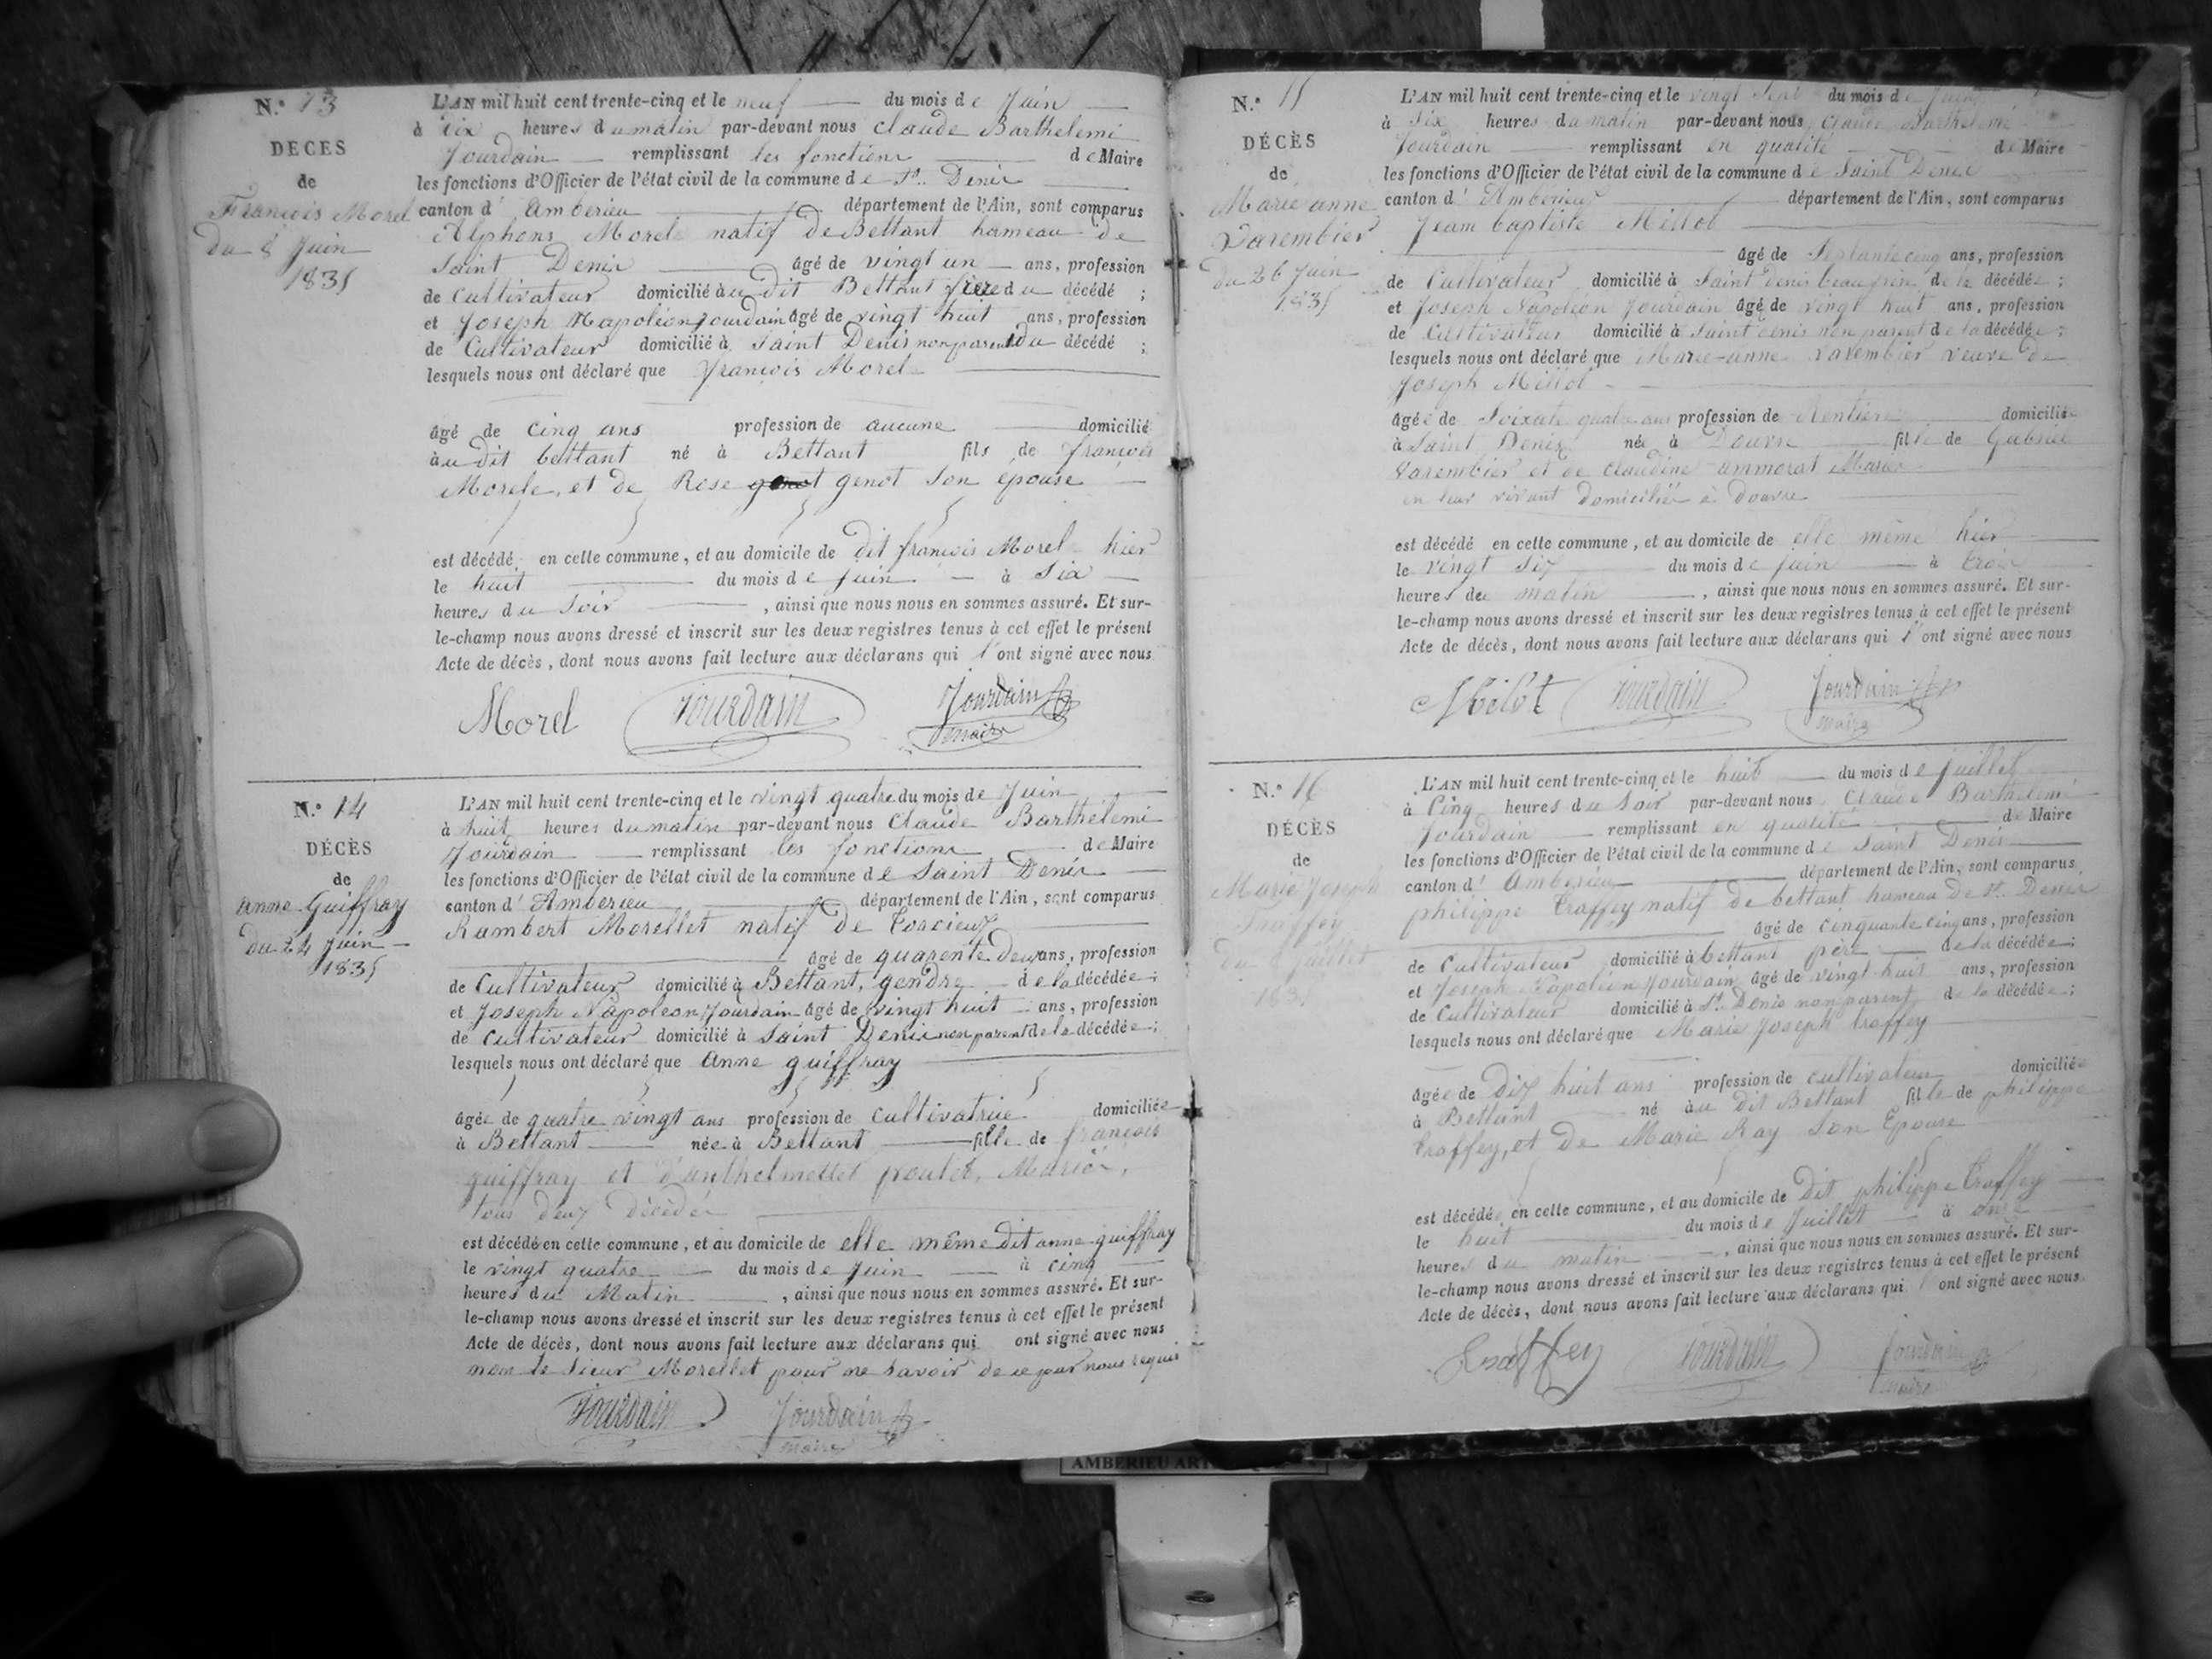 N.° 13
DÉCÈS
de
François Morel
du 8 Juin
1835
L'AN mil huit cent trente-cinq et le neuf du mois de Juin
à dix heures du matin par-devant nous Claude Barthelemi
Jourdain remplissant les fonctions de Maire
les fonctions d'Officier de l'état civil de la commune de St. Denis
canton d' Amberieu département de l'Ain, sont comparus
Alphons Morel natif de Bettant hameau de
Saint Denis âgé de vingt un ans, profession
de Cultivateur domicilié au dit Bettant frère du décédé ;
et Joseph Napoléon Jourdain âgé de vingt huit ans, profession
de Cultivateur domicilié à Saint Denis non parent du décédé ;
lesquels nous ont déclaré que françois Morel
âgé de cinq ans profession de aucune domicilié
au dit bettant né à Bettant fils de françois
Morele, et de Rose genot son épouse
est décédé en cette commune, et au domicile de dit françois Morel hier
le huit du mois de juin à Six
heures du Soir , ainsi que nous nous en sommes assuré. Et sur-
le-champ nous avons dressé et inscrit sur les deux registres tenus à cet effet le présent
Acte de décès, dont nous avons fait lecture aux déclarans qui l'ont signé avec nous
Morel Jourdain Jourdain
maire
N.° 14
DÉCÈS
de
Anne Guiffray
du 24 Juin
1835
L'AN mil huit cent trente-cinq et le vingt quatre du mois de Juin
à huit heures du matin par-devant nous Claude Barthélemi
Jourdain remplissant les fonctions de Maire
les fonctions d'Officier de l'état civil de la commune de Saint Denis
canton d' Amberieu département de l'Ain, sont comparus
Rambert Morellet natif de Torcieux
âgé de quarente deux ans, profession
de Cultivateur domicilié à Bettant, gendre de la décédée ;
et Joseph Napoleon Jourdain âgé de vingt huit ans, profession
de Cultivateur domicilié à Saint Denis non parent de la décédée ;
lesquels nous ont déclaré que Anne guiffray
âgée de quatre vingt ans profession de cultivatrice domiciliée
à Bettant née à Bettant fille de françois
guiffray et d'anthelmette Mariés,
tous deux décédés
est décédé en cette commune, et au domicile de elle même dit anne guiffray
le vingt quatre du mois de Juin à cinq
heures du Matin , ainsi que nous nous en sommes assuré. Et sur-
le-champ nous avons dressé et inscrit sur les deux registres tenus à cet effet le présent
Acte de décès, dont nous avons fait lecture aux déclarans qui ont signé avec nous
non le Sieur Morellet pour ne savoir de ce par nous requis
Jourdain Jourdain
maire
N.° 15
DÉCÈS
de
Marie anne
Varembier
du 26 Juin
1835
L'AN mil huit cent trente-cinq et le vingt Sept du mois de Juin
à Six heures du matin par-devant nous Claude Barthelemi
Jourdain remplissant en qualité de Maire
les fonctions d'Officier de l'état civil de la commune de Saint Denis
canton d' Amberieu département de l'Ain, sont comparus
Jean baptiste Millot
âgé de Septante cinq ans, profession
de Cultivateur domicilié à Saint denis beaufrère de la décédée ;
et Joseph Napoléon Jourdain âgé de vingt huit ans, profession
de Cultivateur domicilié à Saint denis non parent de la décédée ;
lesquels nous ont déclaré que Marie-anne Varembier veuve de
Joseph Millot
âgée de Soixate quatre ans profession de Rentière domiciliée
à Saint Denis née à Douvre fille de Gabriel
Varembier et de Claudine ammorat Mariés
en leur vivant domiciliés à Douvre
est décédé en cette commune, et au domicile de elle même hier
le vingt Six du mois de juin à trois
heures du matin , ainsi que nous nous en sommes assuré. Et sur-
le-champ nous avons dressé et inscrit sur les deux registres tenus à cet effet le présent
Acte de décès, dont nous avons fait lecture aux déclarans qui l'ont signé avec nous
Milot Jourdain Jourdain
maire
N.° 16
DÉCÈS
de
Marie Joseph
Traffey
du 8 Juillet
1835
L'AN mil huit cent trente-cinq et le huit du mois de Juillet
à Cinq heures du soir par-devant nous Claude Barthelemi
Jourdain remplissant en qualité de Maire
les fonctions d'Officier de l'état civil de la commune de Saint Denis
canton d' Amberieu département de l'Ain, sont comparus
philippe traffey natif de bettant hameau de St. Denis
âgé de cinquante cinq ans, profession
de Cultivateur domicilié à bettant père de la décédée ;
et Joseph Napoléon Jourdain âgé de vingt huit ans, profession
de Cultivateur domicilié à St. Denis non parent de la décédée ;
lesquels nous ont déclaré que Marie Joseph traffey
âgée de Dix huit ans profession de cultivateur domiciliée
à Bettant né au dit Bettant fille de philippe
traffey, et de Marie Ray Son Epouse
est décédée en cette commune, et au domicile de Dit philippe traffey
le huit du mois de Juillet à onze
heures du matin , ainsi que nous nous en sommes assuré. Et sur-
le-champ nous avons dressé et inscrit sur les deux registres tenus à cet effet le présent
Acte de décès, dont nous avons fait lecture aux déclarans qui l'ont signé avec nous
Traffey Jourdain Jourdain
maire
AMBERIEU